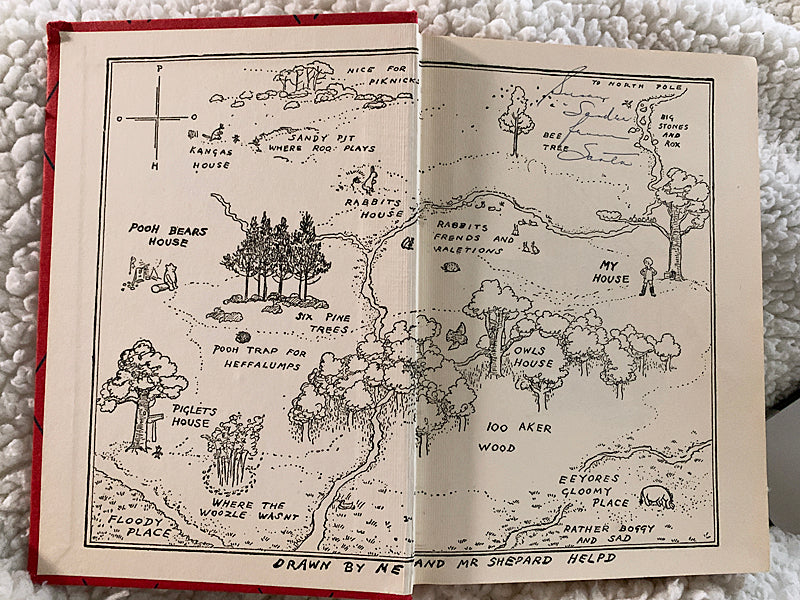 P
H
NICE FOR
PIKNICKS
TO NORTH POLE
BIG
STONES
AND
ROX
BEE
TREE
KANGAS
HOUSE
SANDY PIT
WHERE ROO PLAYS
RABBITS
HOUSE
POOH BEARS
HOUSE
RABBITS
FRENDS AND
RALETIONS
MY
HOUSE
SIX PINE
TREES
POOH TRAP FOR
HEFFALUMPS
OWLS
HOUSE
PIGLETS
HOUSE
100 AKER
WOOD
WHERE THE
WOOZLE WASNT
FLOODY
PLACE
EEYORES
GLOOMY
PLACE
RATHER BOGGY
AND SAD
DRAWN BY ME AND MR SHEPARD HELPD